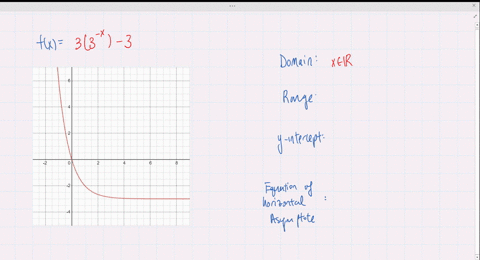 f(x) = 3(3^-x) - 3
Domain: x∈ℝ
Range:
y-intercept:
Equation of
horizontal :
Asymptote
6
4
2
-2
0
2
4
6
8
-2
-4